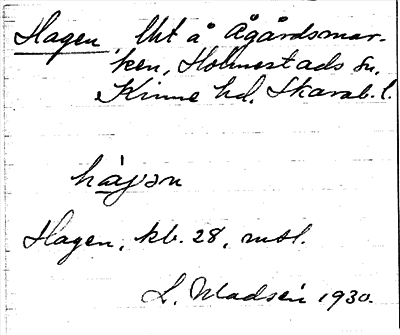 Hagen, lht å Ågårdsmar-
ken, Holmestads sn,
Kinne hd. Skarab. l.
hàgən
Hagen, kb. 28, mtl.
L. Madsén 1930.